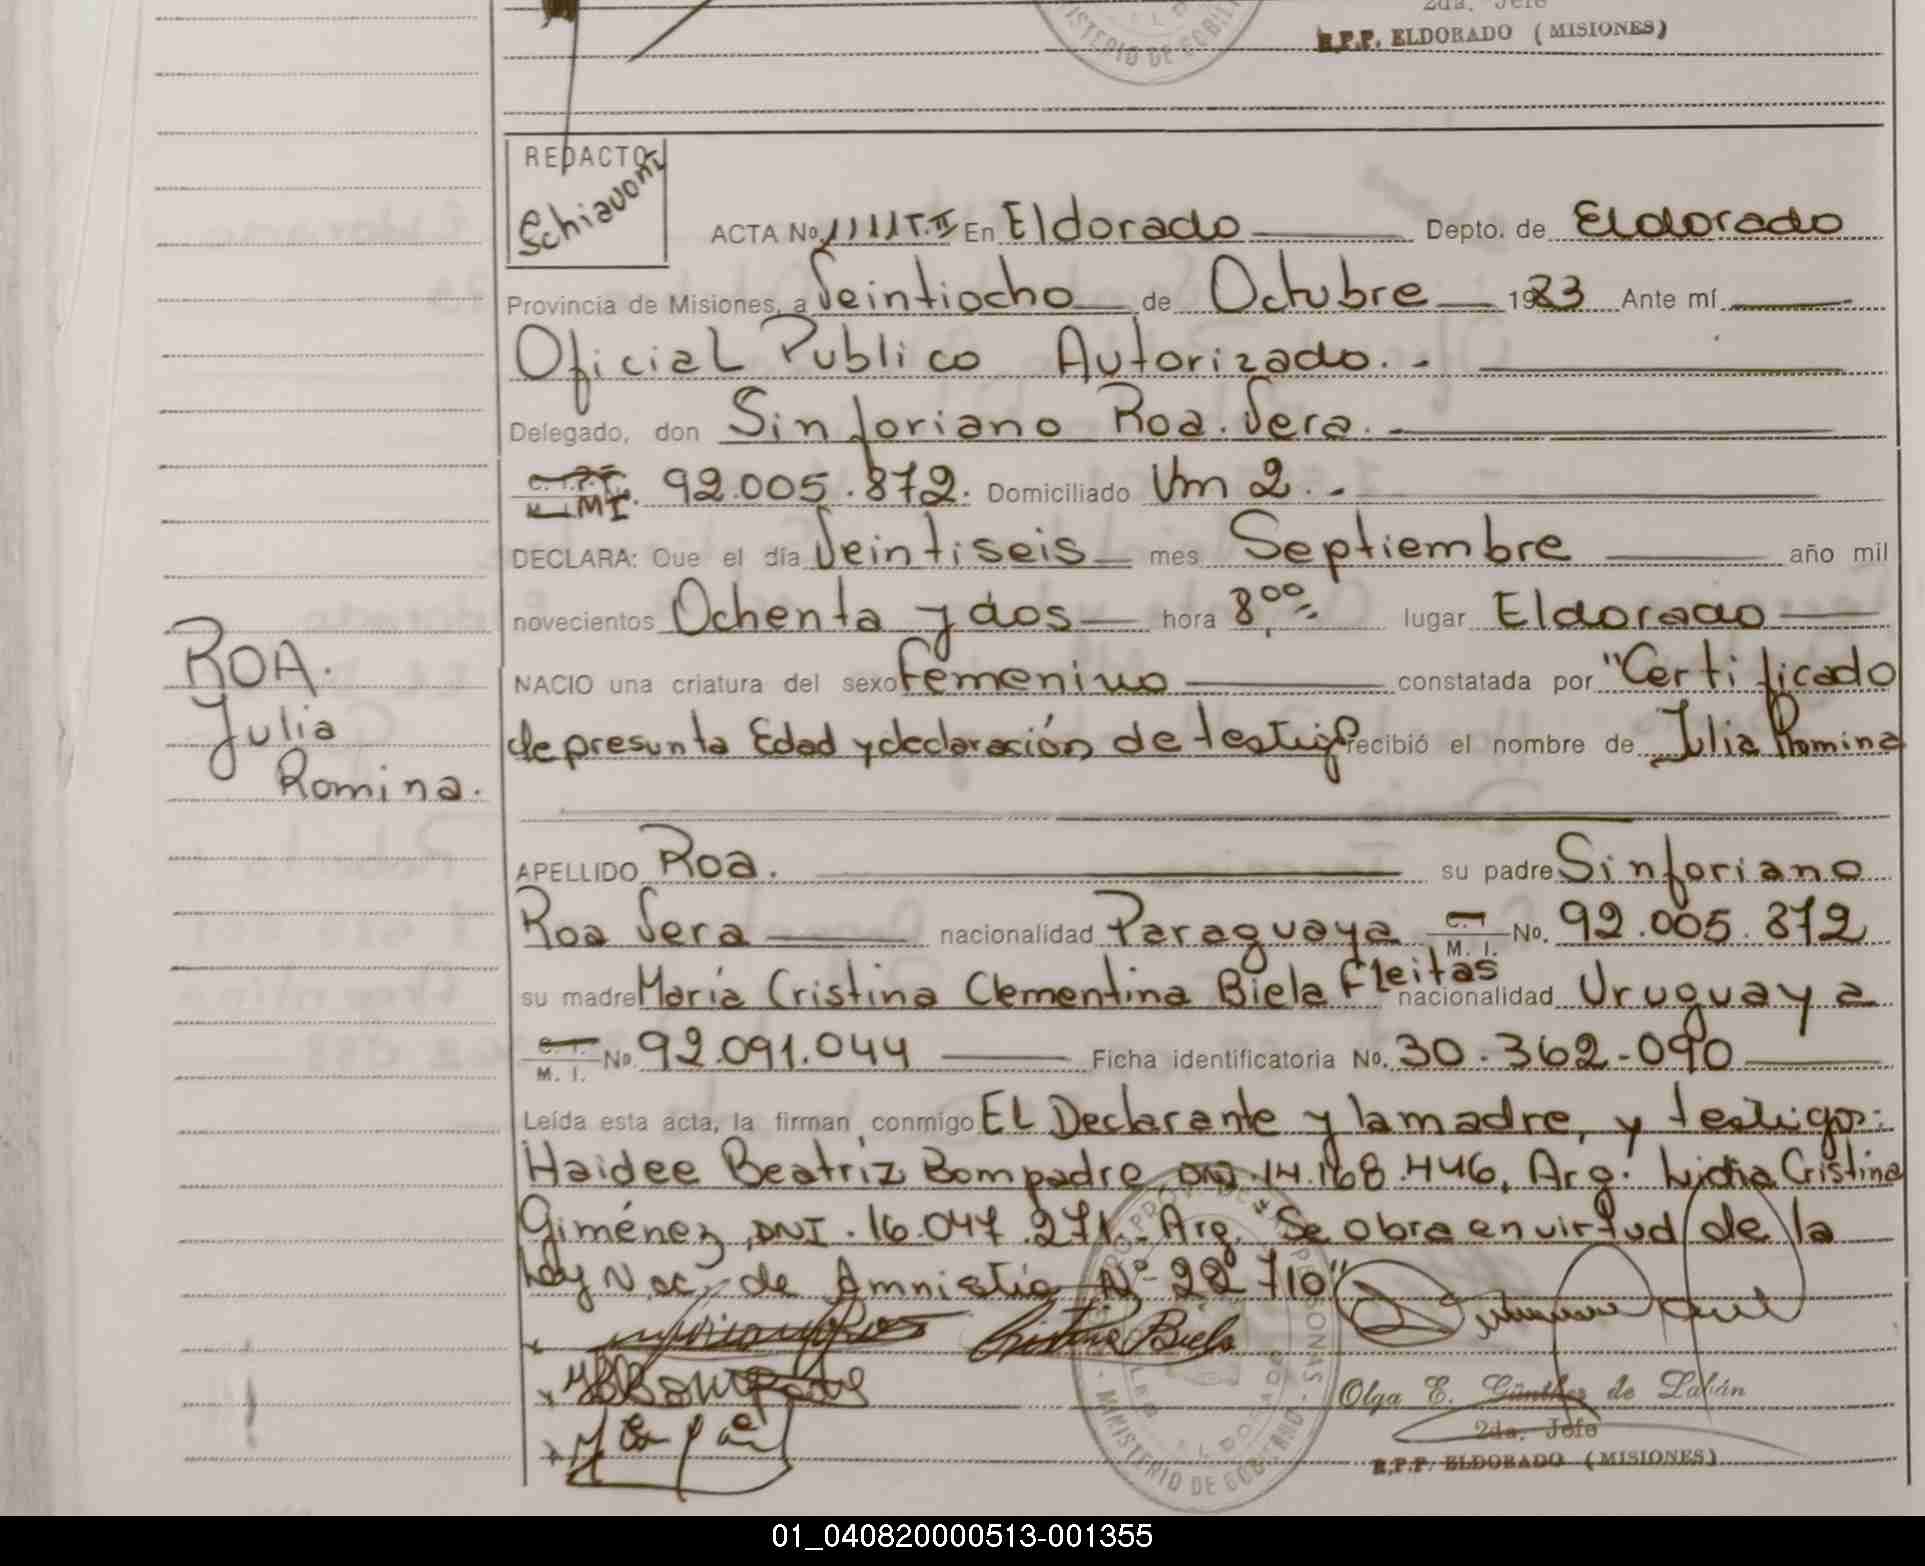 2da. Jefe
R.P.P. ELDORADO (MISIONES)
MINISTERIO DE GOBIERNO
REDACTO
Schiavoni
ACTA No. 1111 T.II En Eldorado Depto. de Eldorado
Provincia de Misiones, a Veintiocho de Octubre 1983 Ante mí
Oficial Publico Autorizado.-
Delegado, don Sinforiano Roa Vera.
M.I. 92.005.872. Domiciliado Km 2.-
DECLARA: Que el día Veintiseis mes Septiembre año mil
novecientos Ochenta y dos hora 8,00 lugar Eldorado
NACIO una criatura del sexo Femenino constatada por "Certificado
de presunta Edad y declaración de testigo recibió el nombre de Julia Romina
ROA.
Julia
Romina.
APELLIDO Roa. su padre Sinforiano
Roa Vera nacionalidad Paraguaya C.I. M. I. No. 92.005.872
su madre María Cristina Clementina Biela Fleitas nacionalidad Uruguaya
C. I. M. I. No. 92.091.044 Ficha identificatoria No. 30.362.090
Leída esta acta, la firman conmigo El Declarante y la madre, y testigos:
Haidee Beatriz Bompadre DNI.14.168.446, Arg. Lidia Cristina
Giménez, DNI. 16.047.271. Arg. "Se obra en virtud de la
Ley Nac. de Amnistia Nº 22710"
Cristina Biela
Olga E. Günther de Labán
2da. Jefe
R.P.P. ELDORADO (MISIONES)
MINISTERIO DE GOBIERNO
01_040820000513-001355